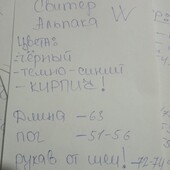 Свитер W
Альпака
Цвета:
-чёрный
-темно-синий
- КИРПИЧ!
Длина - 63
ПОГ - 51-56
рукав от шеи! -72-74